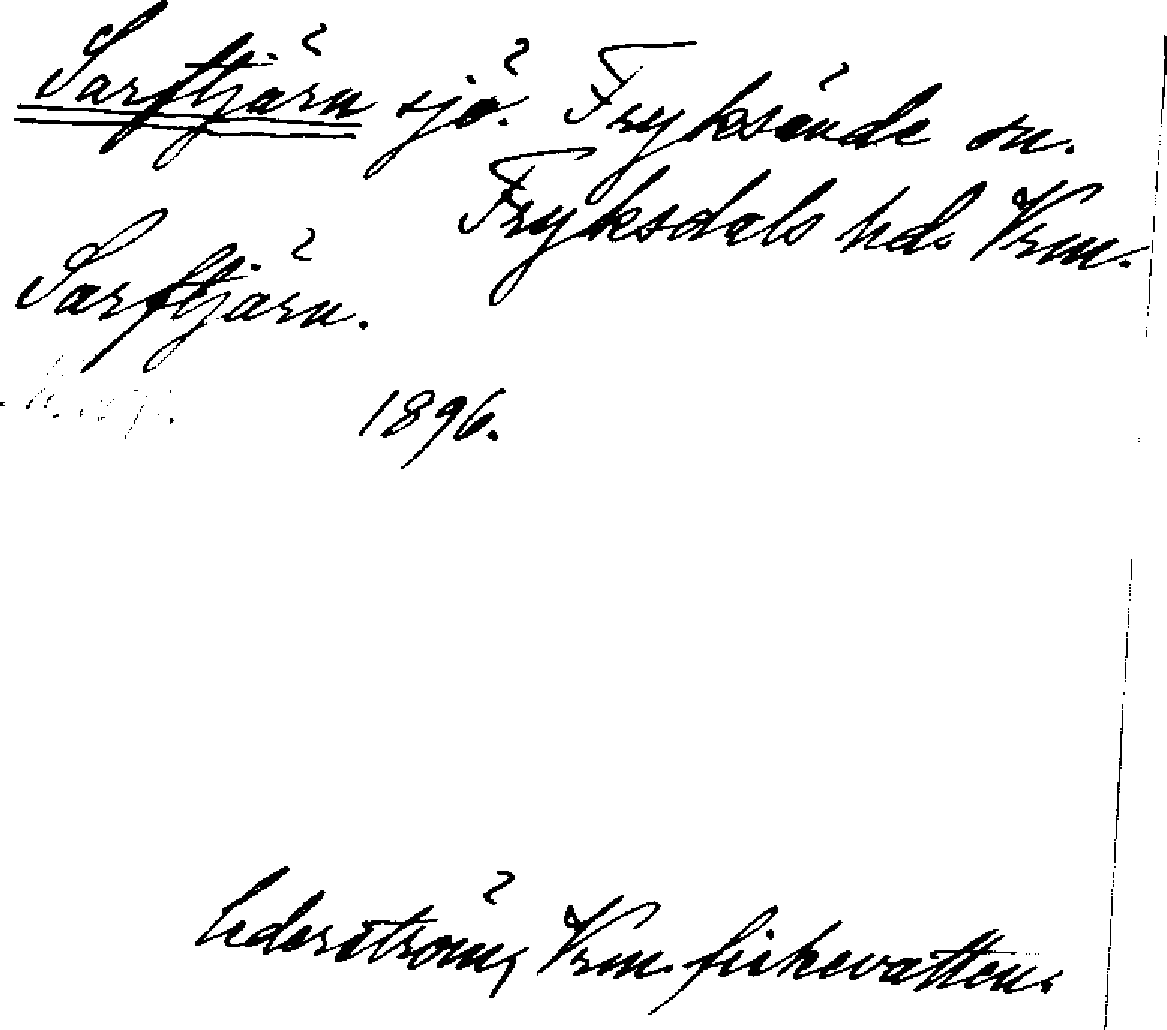 Sarftjärn sjö. Fryksände sn.
Fryksdals hd. Vrm.
Sarftjärn.
1896.
Cederström, Vrm. fiskevatten.